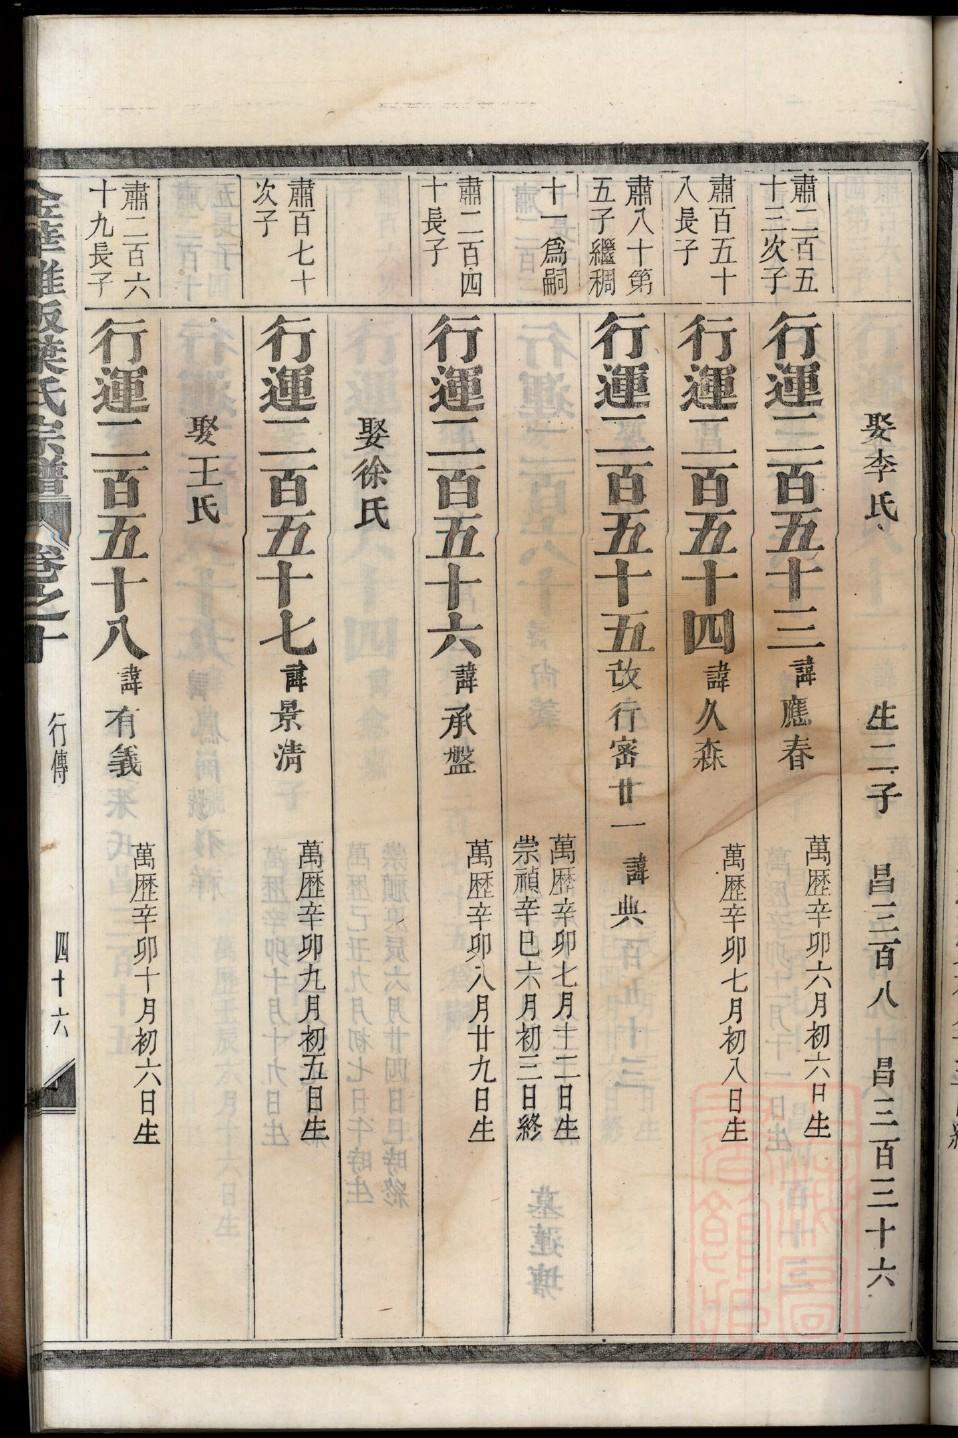 娶李氏 生二子 昌三百八 昌三百三十六
肅二百五十三次子
行運二百五十三 諱應春 萬歷辛卯六月初六日生
肅百五十八長子
行運二百五十四 諱久森 萬歷辛卯七月初八日生
肅八十第五子繼稠十一爲嗣
行運二百五十五 改行審廿一 諱典
萬歷辛卯七月十二日生
崇禎辛巳六月初三日終
肅二百四十長子
行運二百五十六 諱承盤 萬歷辛卯八月廿九日生
娶徐氏
肅百七十次子
行運二百五十七 諱景清 萬歷辛卯九月初五日生
娶王氏
肅二百六十九長子
行運二百五十八 諱有義 萬歷辛卯十月初六日生
氏宗譜 卷之十 行傳 四十六